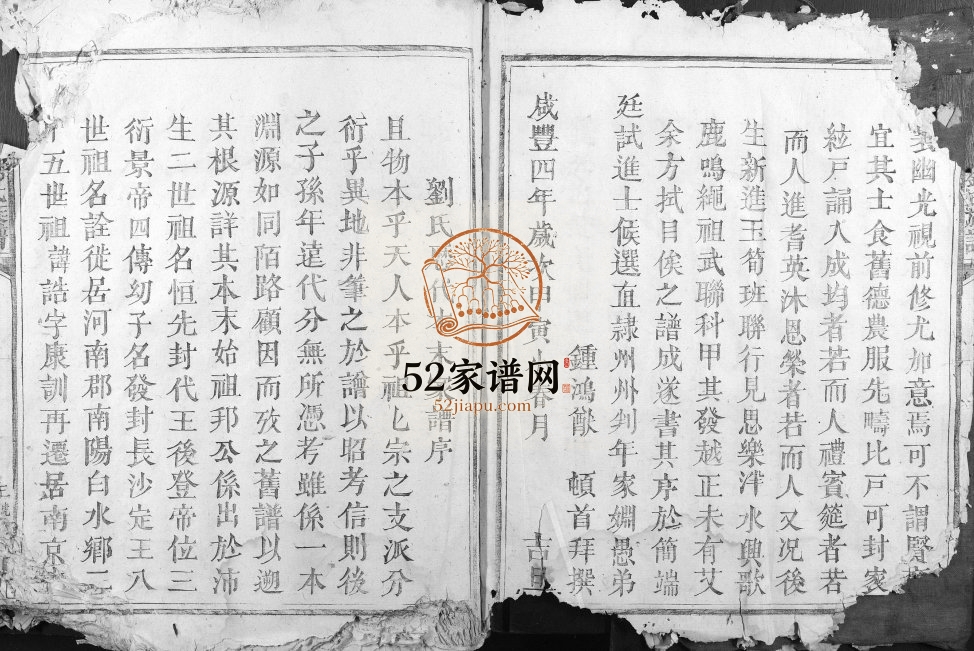 幽光視前修尤加意焉可不謂賢
宜其士食舊德農服先疇比戸可封家
絃戸誦入成均者若而人禮賓筵者若
而人進耆英沐恩榮者若而人又况後
生新進玉筍班聯行見思樂泮水興歌
鹿鳴繩祖武聯科甲其發越正未有艾
余方拭目俟之譜成遂書其序於簡端
廷試進士候選直隸州州判年家姻愚弟
鍾鴻猷 頓首拜撰
咸豐四年歲次甲寅 春月
劉氏 代 末 譜序
且物本乎天人本乎祖匕宗之支派分
衍乎異地非筆之於譜以昭考信則後
之子孫年遠代分無所憑考雖係一本
淵源如同陌路顧因而攷之舊譜以遡
其根源詳其本末始祖邦公係出於沛
生二世祖名恒先封代王後登帝位三
衍景帝四傳幼子名發封長沙定王八
世祖名詮徙居河南郡南陽白水鄉二
五世祖諱誥字康訓再遷居南京
52家谱网
52jiapu.com